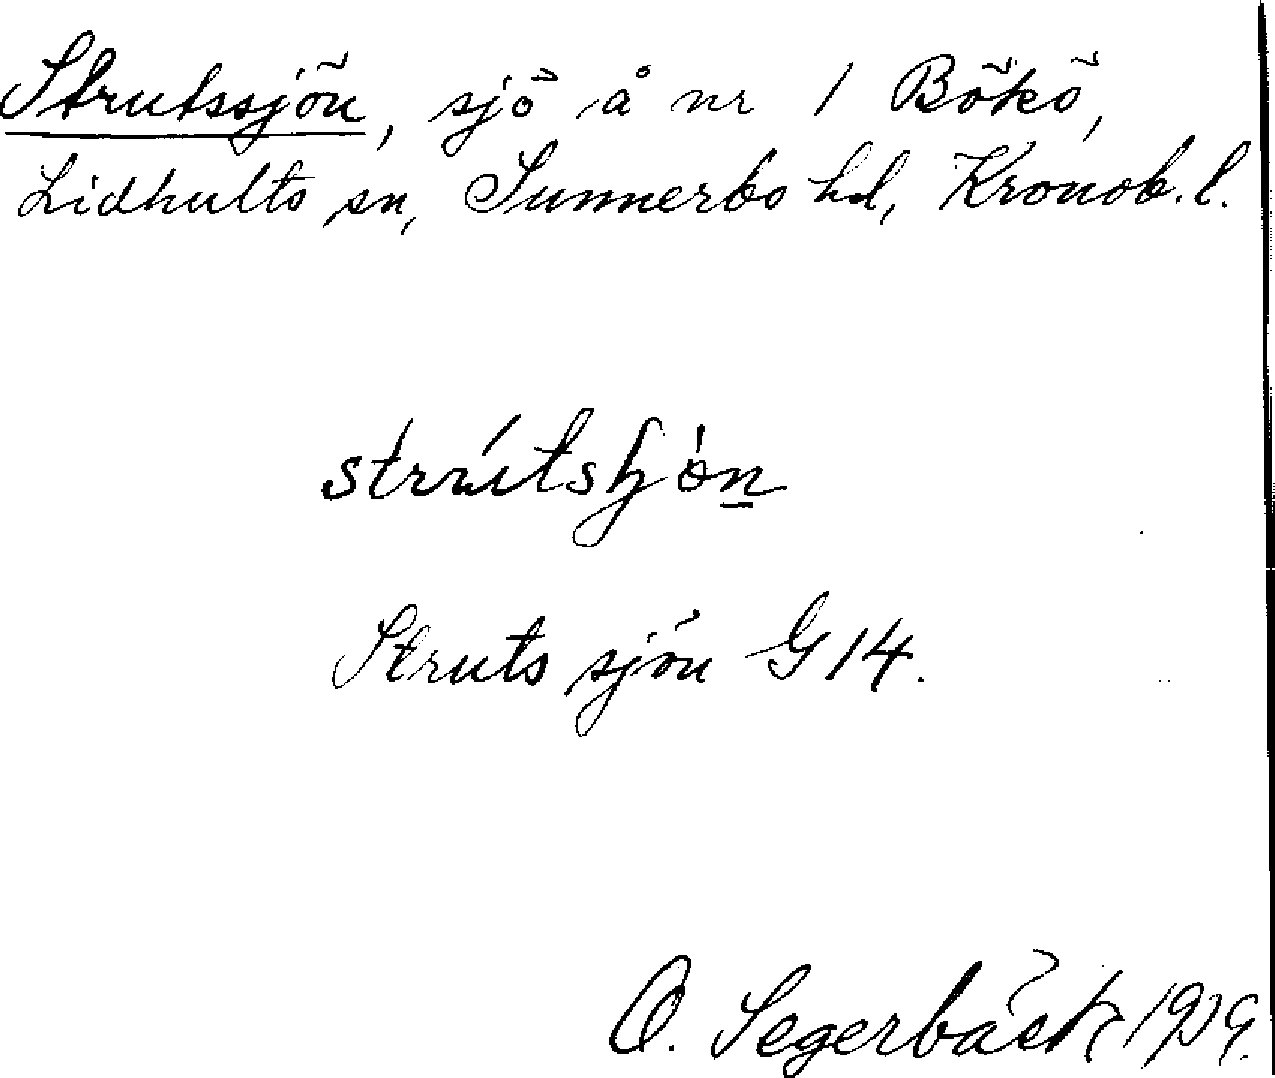 Strutssjön, sjö å nr 1 Bökö,
Lidhults sn, Sunnerbo hd, Kronob. l.
Struts sjön G 14.
O. Segerbäck 1929.